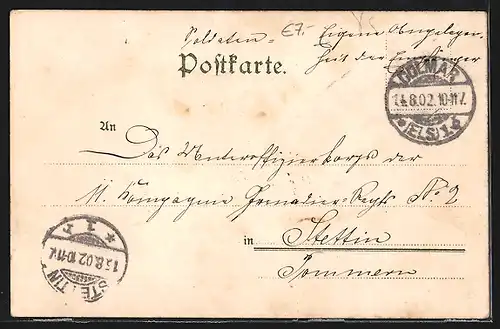 Soldaten = €7.- Eigene Angelegen-
heit des Empfänger
Postkarte.
COLMAR
14.8.02.10-11V.
*(ELS)1.d
An
Das Unteroffizierkorps der
11. Kompagnie Grenadier-Regts No. 2
in Stettin
Pommern
STETTIN
15.8.02.10-11V.
* 1 r